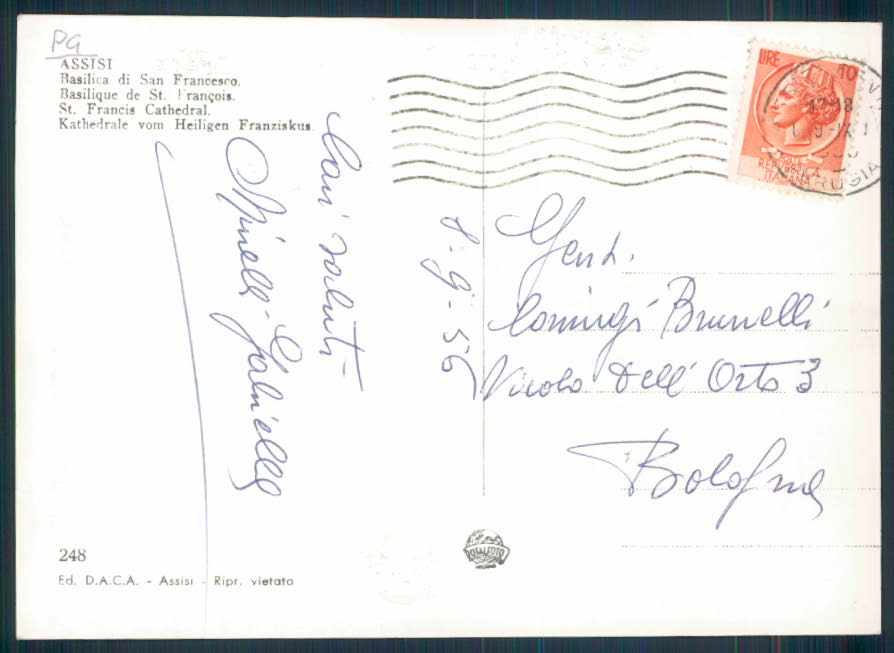 PG
ASSISI
Basilica di San Francesco.
Basilique de St. François.
St. Francis Cathedral.
Kathedrale vom Heiligen Franziskus
Cari saluti
Spinelli Gabriella
8-9-56
LIRE 10
POSTE
REPUBBLICA
ITALIANA
17-18
Gent.
Comingi Brunelli
Vicolo Dell' Orto 3
Bologna
248
Ed. D.A.C.A. - Assisi - Ripr. vietata
ROTALFOTO